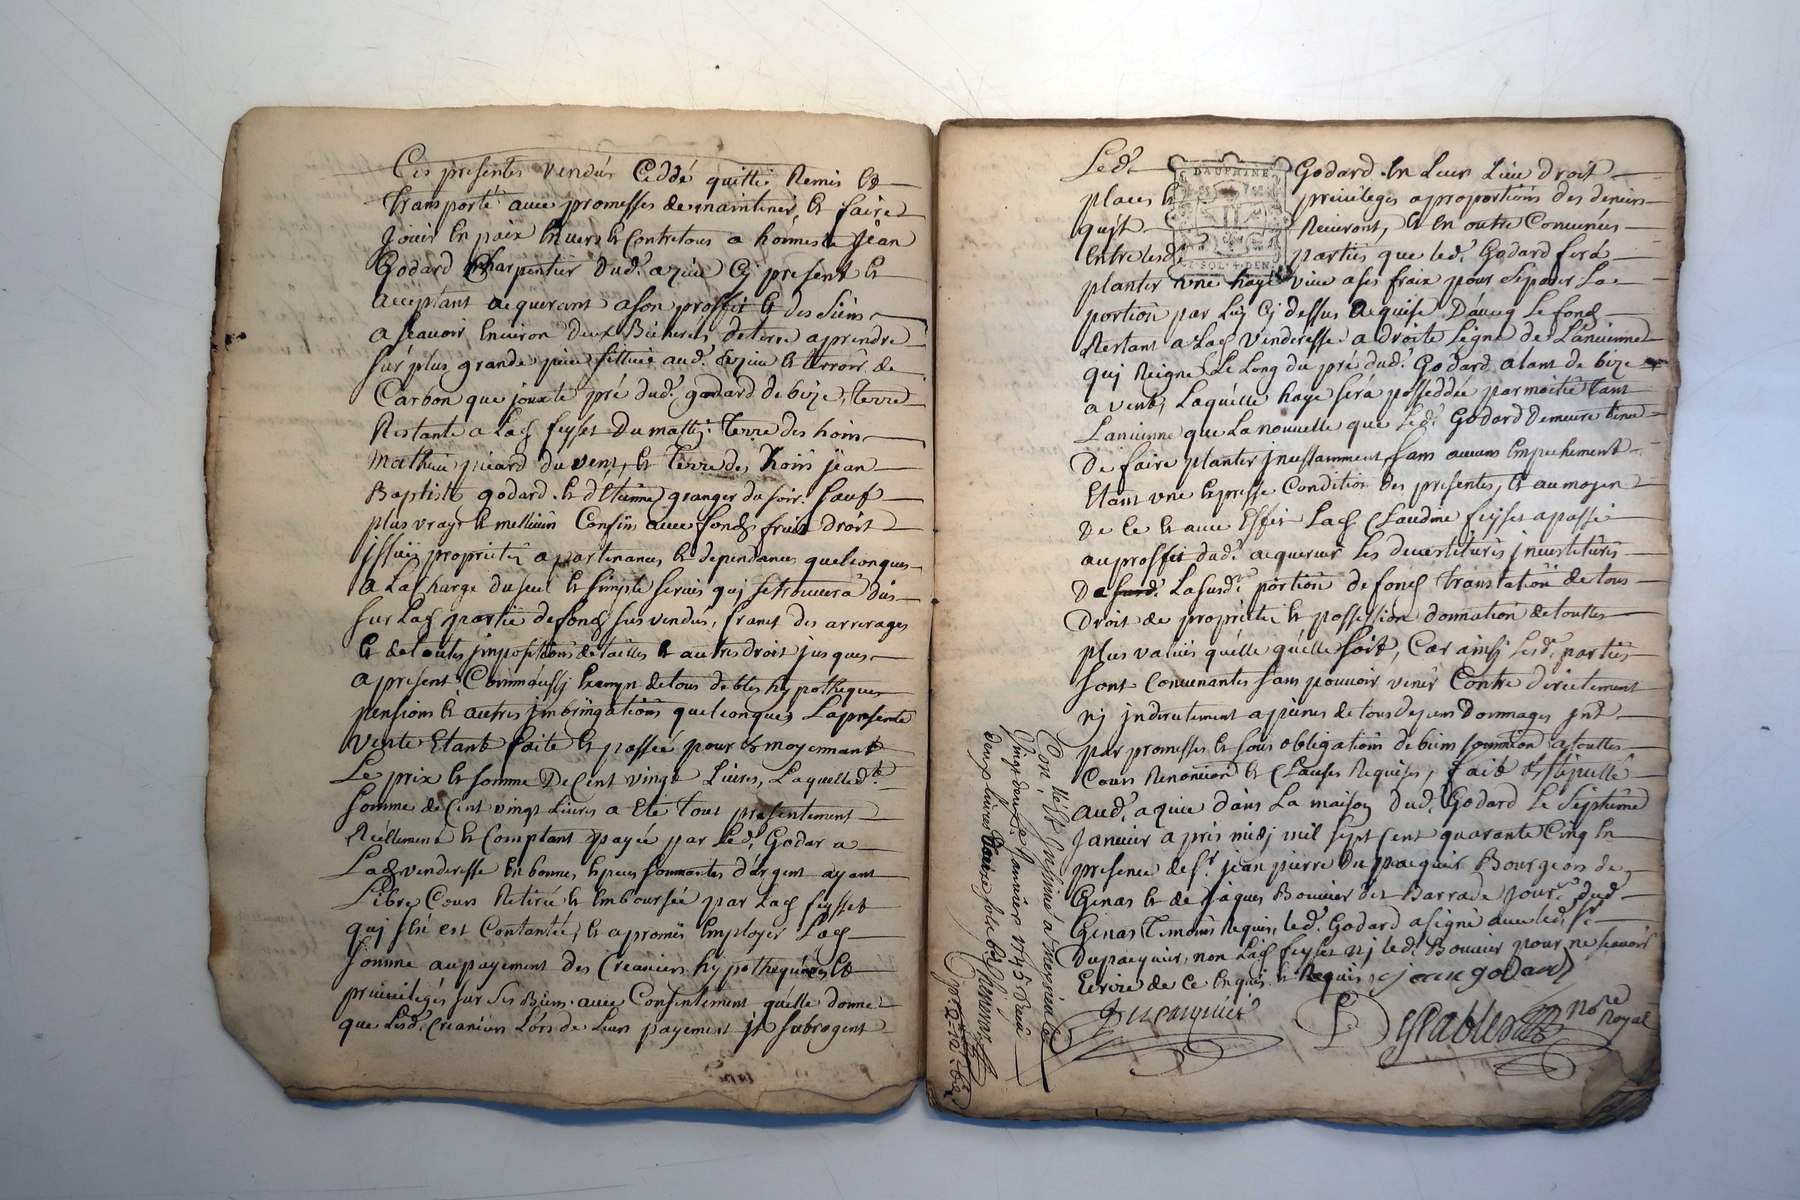 Ces presentes vendus Ceddé quitté Remis Et
transporté avec promesses de maintenir, et faire
Jouir En paix Envers et Contre tous a honneste jean
Godard Charpentier dud. azieu Cy present et
acceptant acquerant a son proffit et des Siens
a scavoir Environ deux Bicherées de terre a prendre
sur plus grande piece sittuée aud. azieu et terroir de
Carbon que jouxte pré dud. godard de bize, terre
Restante a Lad feysset Du matty. Terre des hoirs
Mathieu picard du vent, et Terre des hoirs jean
Baptiste godard. et d'Etienne granger du soir. Sauf
plus vrays et meilleurs Confins avec fonds fruits droit
issües proprietés apartenances et dependances quelconques
a La Charge du seul et simple servis qui se trouvera dus
sur Lad partie de fond sus vendüe, franct des arrerages
et de toutes jmpositions de tailles et autres droit jusques
a present Comm'aussy Exemp de tous debtes hypotheques
pensions et autres jmbringations quelconques La presente
vente Etant faite et passée pour et moyennant
Le prix et somme De Cent vingt Livres, Laquelle d.
Somme de Cent vingt Livres a Eté tout presentement
Réellement et Comptant payée par Led. Godar a
Lad venderesse En bonnes Especes sonnantes d'argent ayant
Libre Cours Retirée et Emboursée par Lad feysset
qui s'en est Contantée, et a promis Employer Lad
Somme au payement des Creanciers hypothequaires et
privilegés sur ses Biens. avec Consentement qu'elle donne
que Lesd. Creanciers Lors de Leurs payement jt subrogent
Led. Godard En Leur Lieu droit
DAUPHINE
places et privileges a proportions des deniers
qu'jt Recevront, et En outre Convenus
Entre lesd. parties que led. Godard fera
SOL. 4 DEN.
planter une haye vive a ses fraix pour Separer La
portion par Luy Cy dessus acquise D'avec Le fond
Restant a Lad venderesse a droite Ligne de L'ancienne
qui Reigne Le Long du pré dud. Godard alant de bize
a vent, Laquelle haye sera posseddée par moitié tant
L'ancienne que La nouvelle que Led. Godard Demeure tenu
De faire planter jncessamment, sans aucun Empechement
Etant une Expresse Condition des presentes, et au moyen
De Ce et avec Effet Lad Claudine feysset a passé
au proffit dud. acquereur Les devestitures jnvestitures
De Lasusd. portion de fond translation de tous
Droit de proprieté et possession donnation de touttes
plus values qu'elle qu'elle soit, Car ainsy Lesd. parties
sont Convenantes sans pouvoir venir Contre directement
ny jndirectement a peines de tous depens Dommages jnt
par promesses et sous obligations de biens soumition a touttes
Cours Renontion et Clauses Requises, fait et stipullé
aud. azieu dans La maison dud. Godard Le Septieme
Janvier apres midy mil sept Cent quarante Cinq En
presence de Sr. jean pierre Du pacquier Bourgeois de
Genas et de jaques Bouvier dit Barrade Jour. dud
Genas Temoins Requis, led. Godard a signé avec led. Sr.
Dupacquier, non Lad feysset ny led. Bouvier pour ne scavoir
Ecrire de Ce Enquis et Requis, jean godard
Dupacquier
Nore Royal
Vingt deux Janvier 1745 Reçu
deux livres